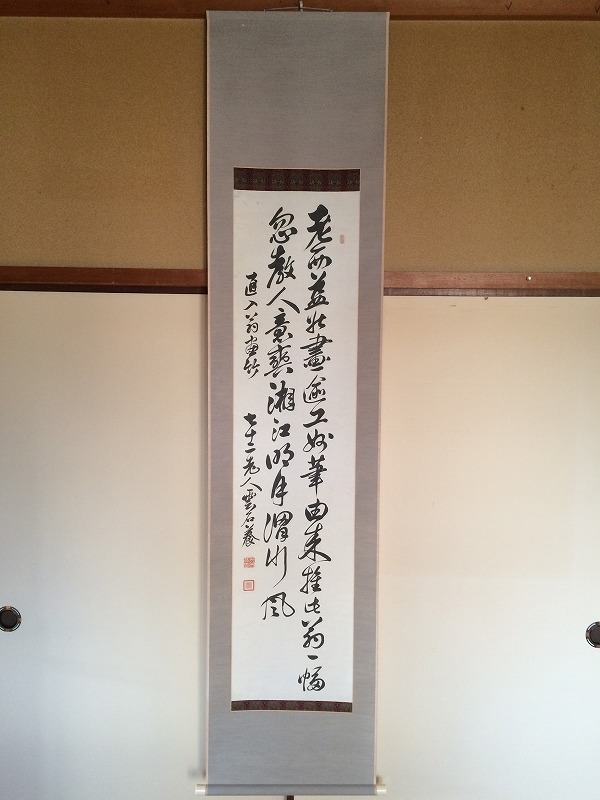 老而益壮畫逾工妙華由来推此翁一幅
忽教人意爽湘江明月渭川風
直入翁畫竹 七十二老人雲石